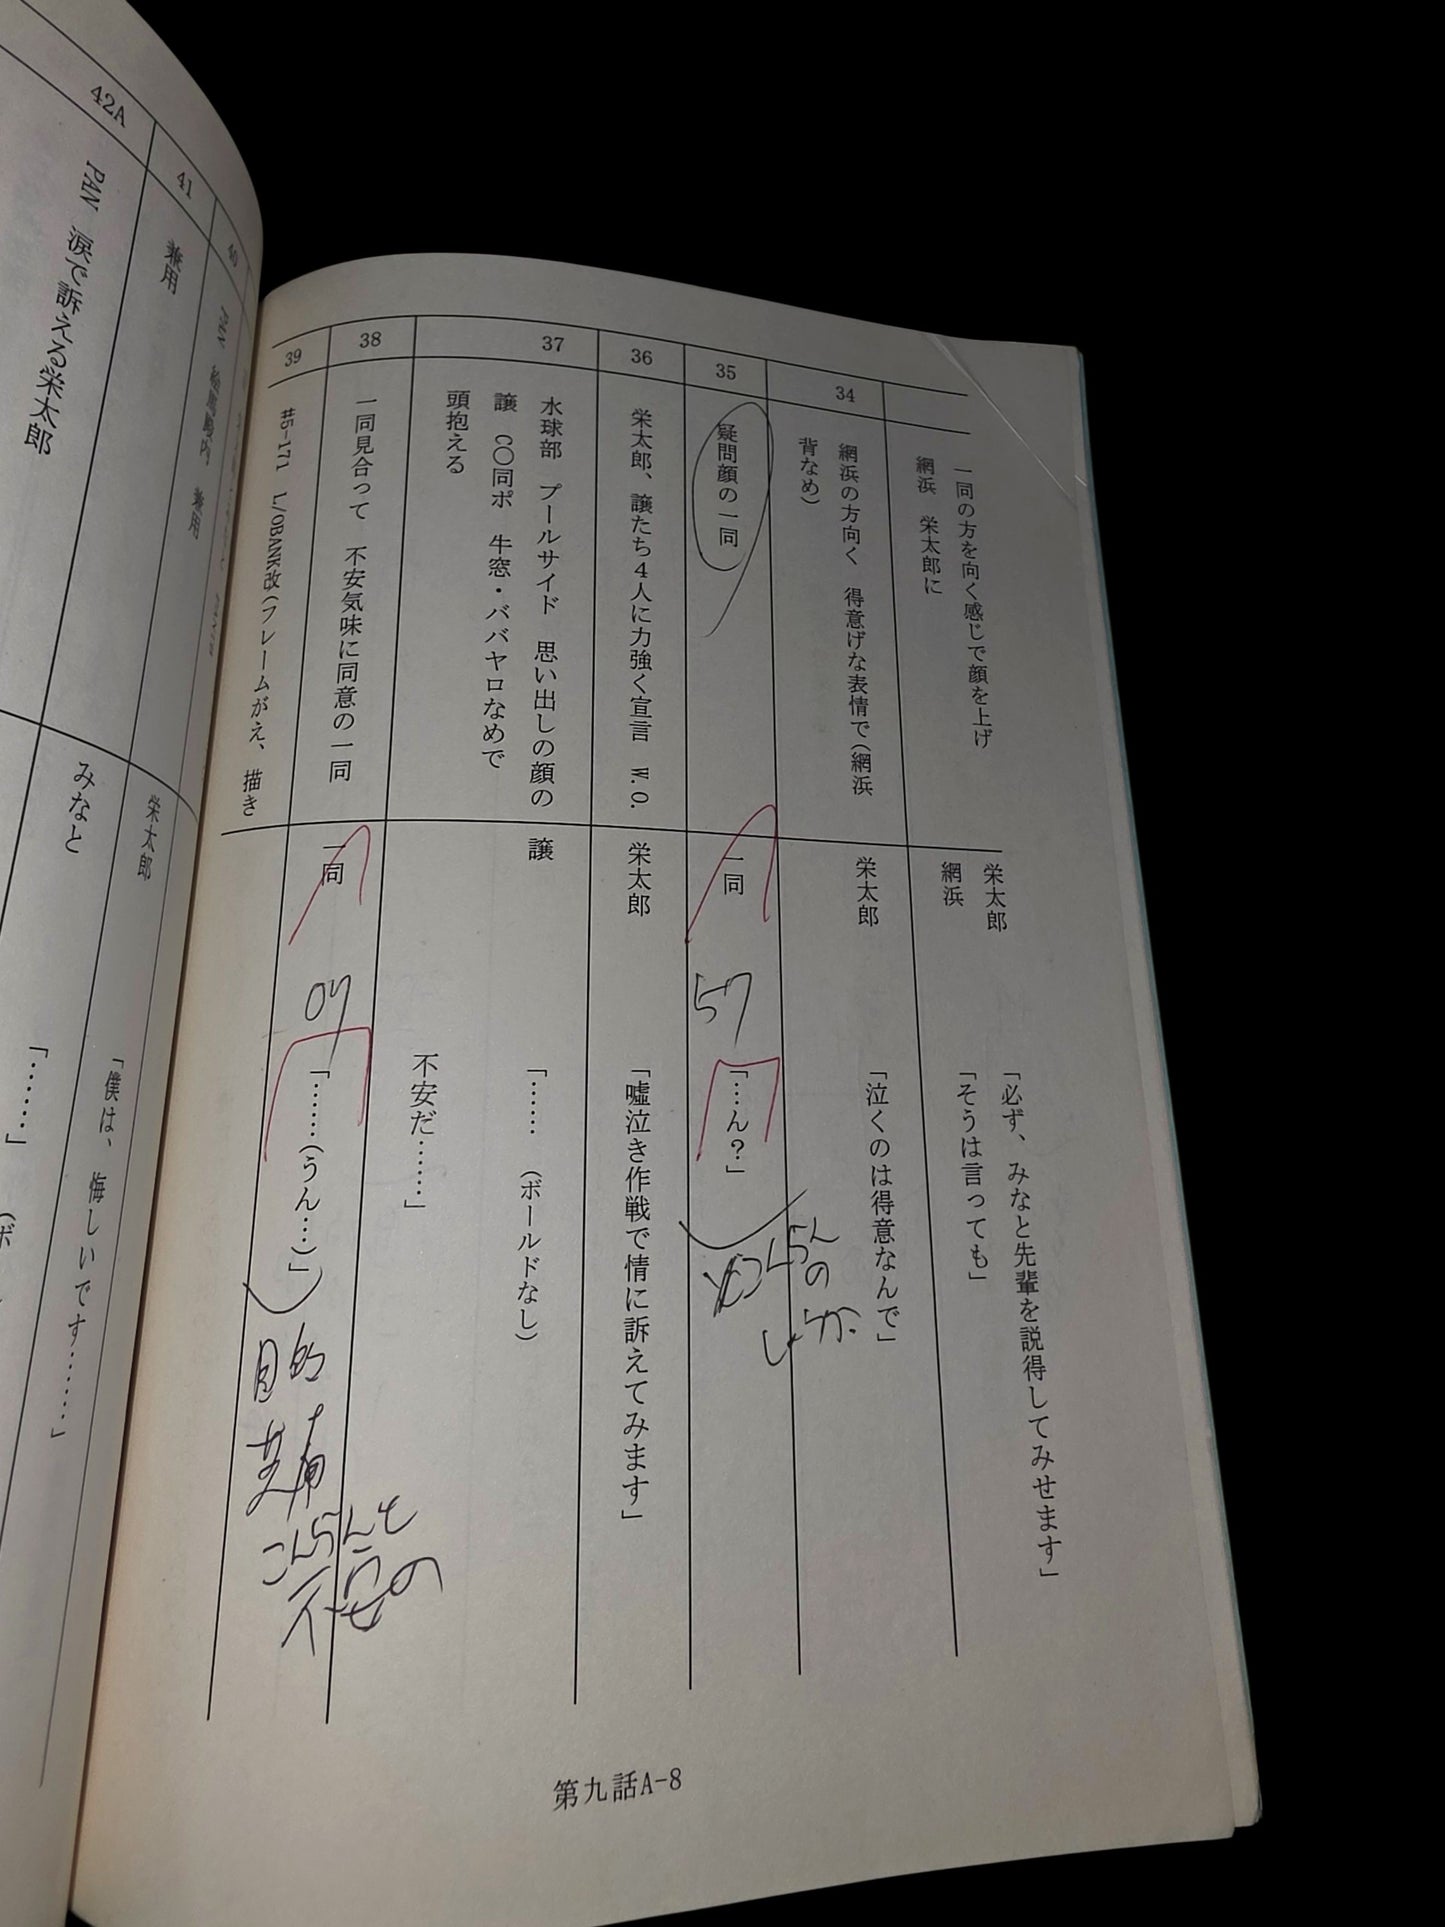 一同の方を向く感じで顔を上げ
網浜 栄太郎に
栄太郎
網浜
「必ず、みなと先輩を説得してみせます」
「そうは言っても」
34
網浜の方向く 得意げな表情で(網浜
背なめ)
栄太郎
「泣くのは得意なんで」
35
疑問顔の一同
一同
57
「…ん?」
36
栄太郎、譲たち4人に力強く宣言 W.O.
栄太郎
「嘘泣き作戦で情に訴えてみます」
37
水球部 プールサイド 思い出しの顔の
譲 C〇同ポ 牛窓・ババヤロなめで
頭抱える
譲
「…… (ボールドなし)
不安だ……」
38
一同見合って 不安気味に同意の一同
一同
07
「……(うん…)」
目的
こんらんと
不安の
39
#5-171 L/OBANK改(フレームがえ、描き
第九話A-8
40
兼用
41
兼用
栄太郎
「僕は、悔しいです……」
42A
PAN 涙で訴える栄太郎
みなと
「……」